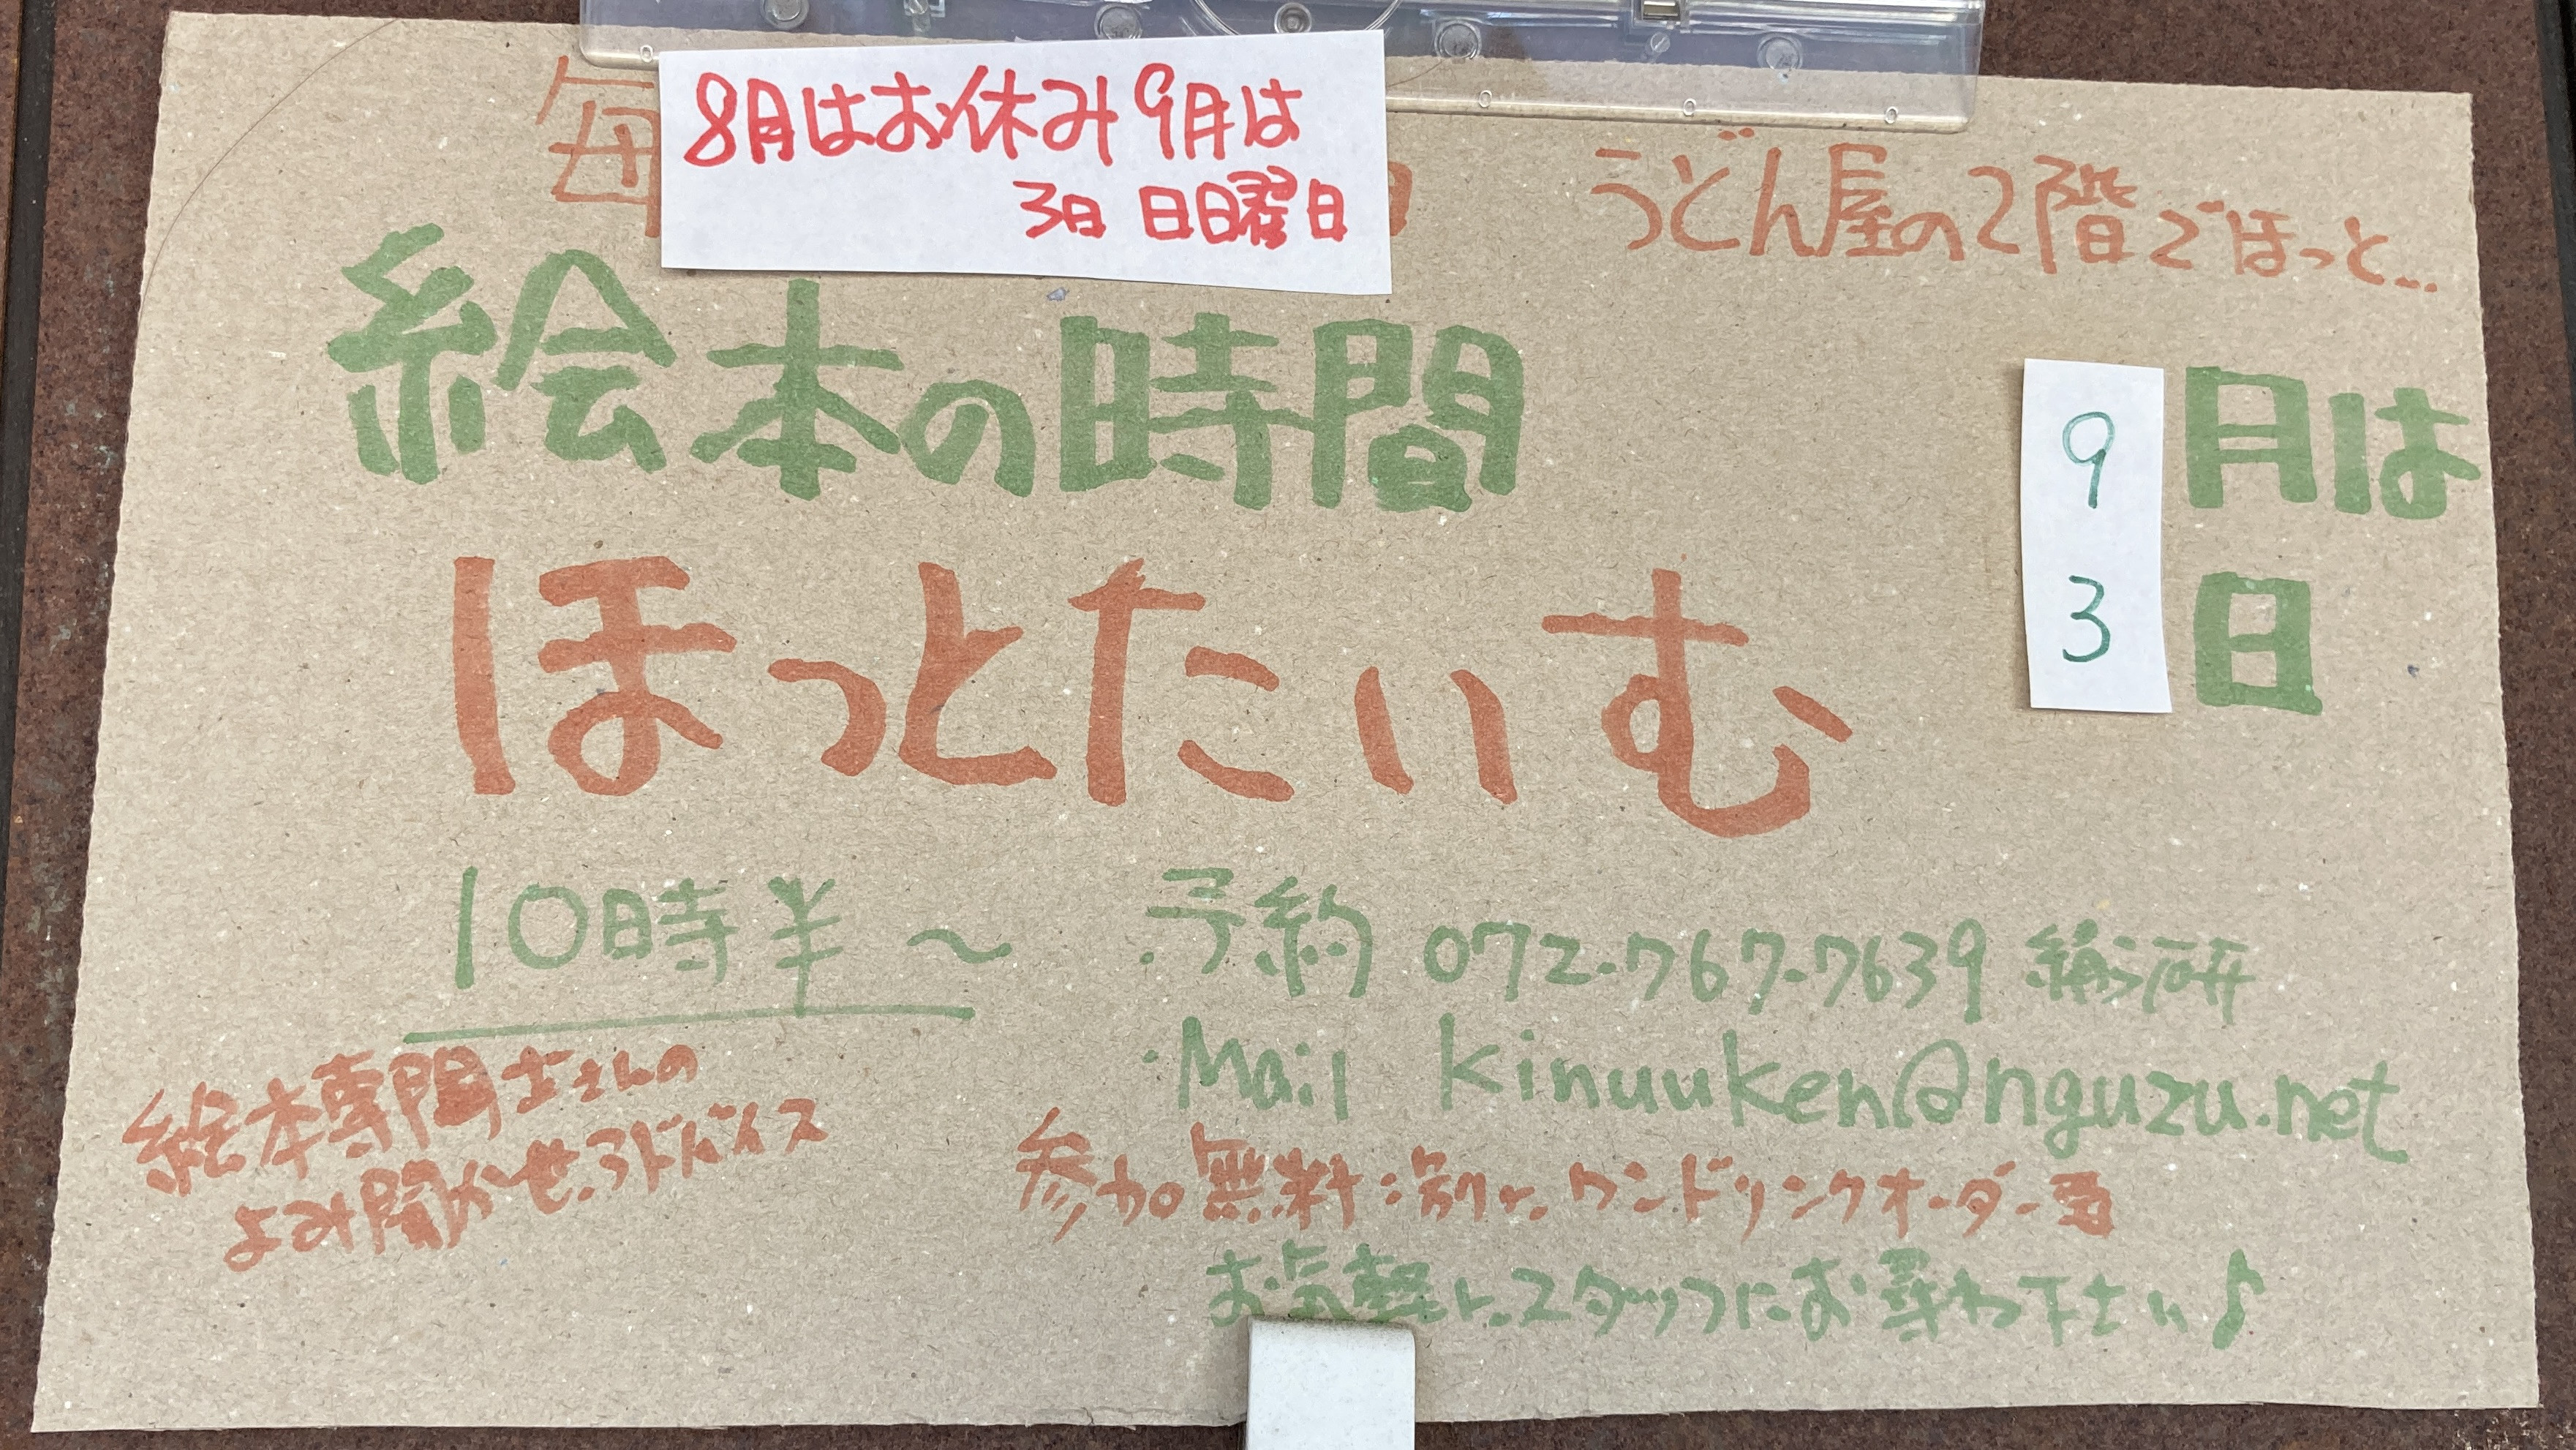 毎
8月はお休み 9月は
3日 日曜日
うどん屋の2階でほっと…
絵本の時間
9月は
3日
ほっとたいむ
10時半～
・予約 072-767-7639
・Mail kinuuken@nguzu.net
絵本専門士さんの
よみ聞かせ・アドバイス
参加無料:別に ワンドリンクオーダー要
お気軽に スタッフにお尋ね下さい♪